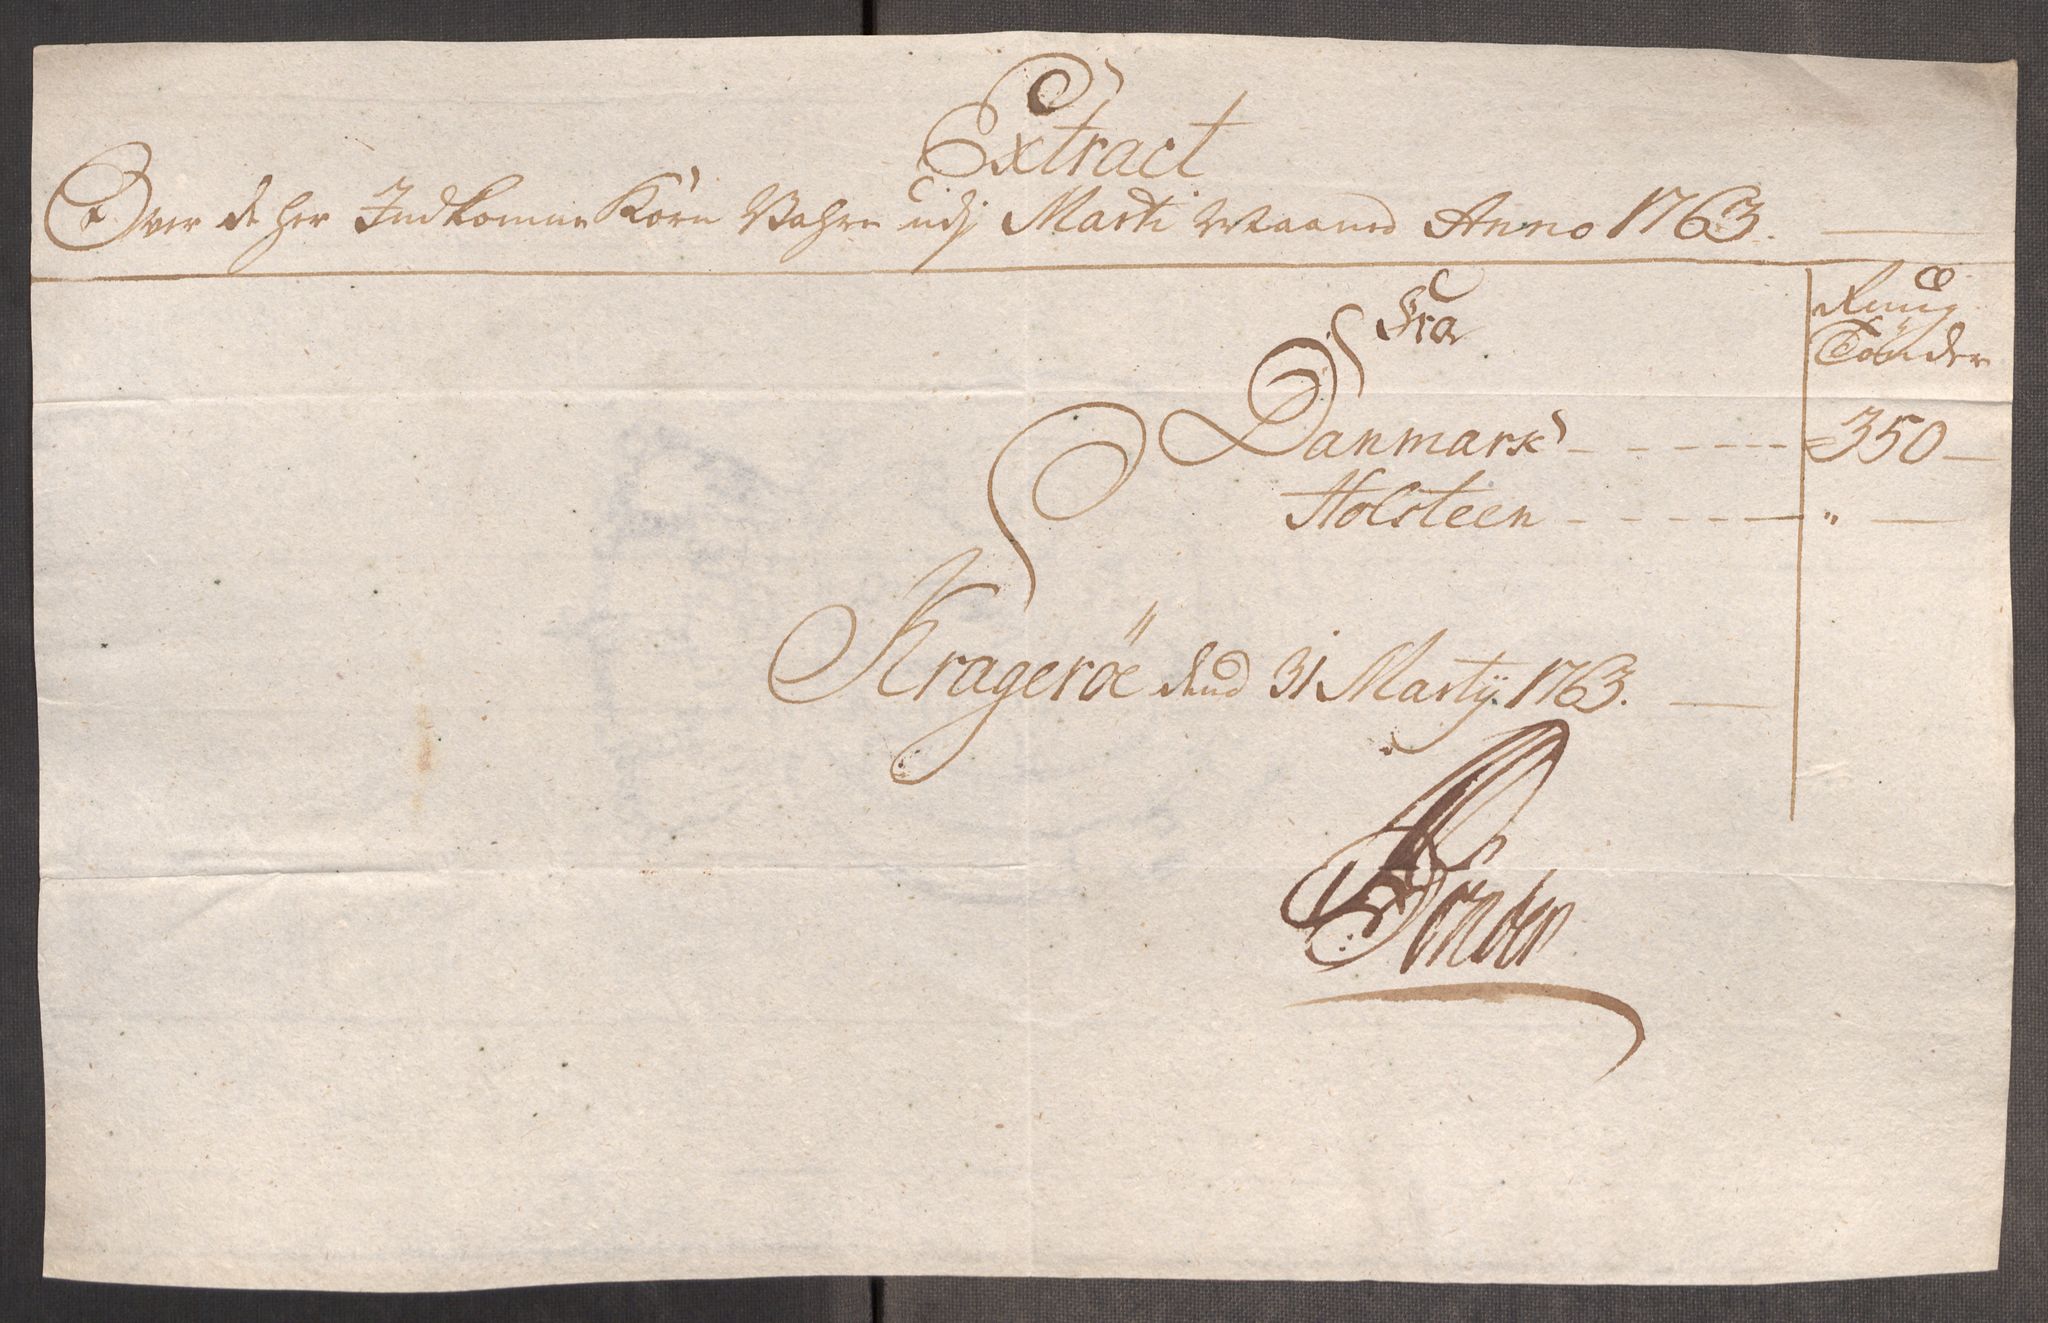 Extract
Over de her Indkomne Korn Vahre udj Marti Maaned Anno 1763.
Fra
Rug
Tönder
Danmark - - - - - 350 —
Holsteen - - - - - " —
Krageröe dend 31 Martij 1763.